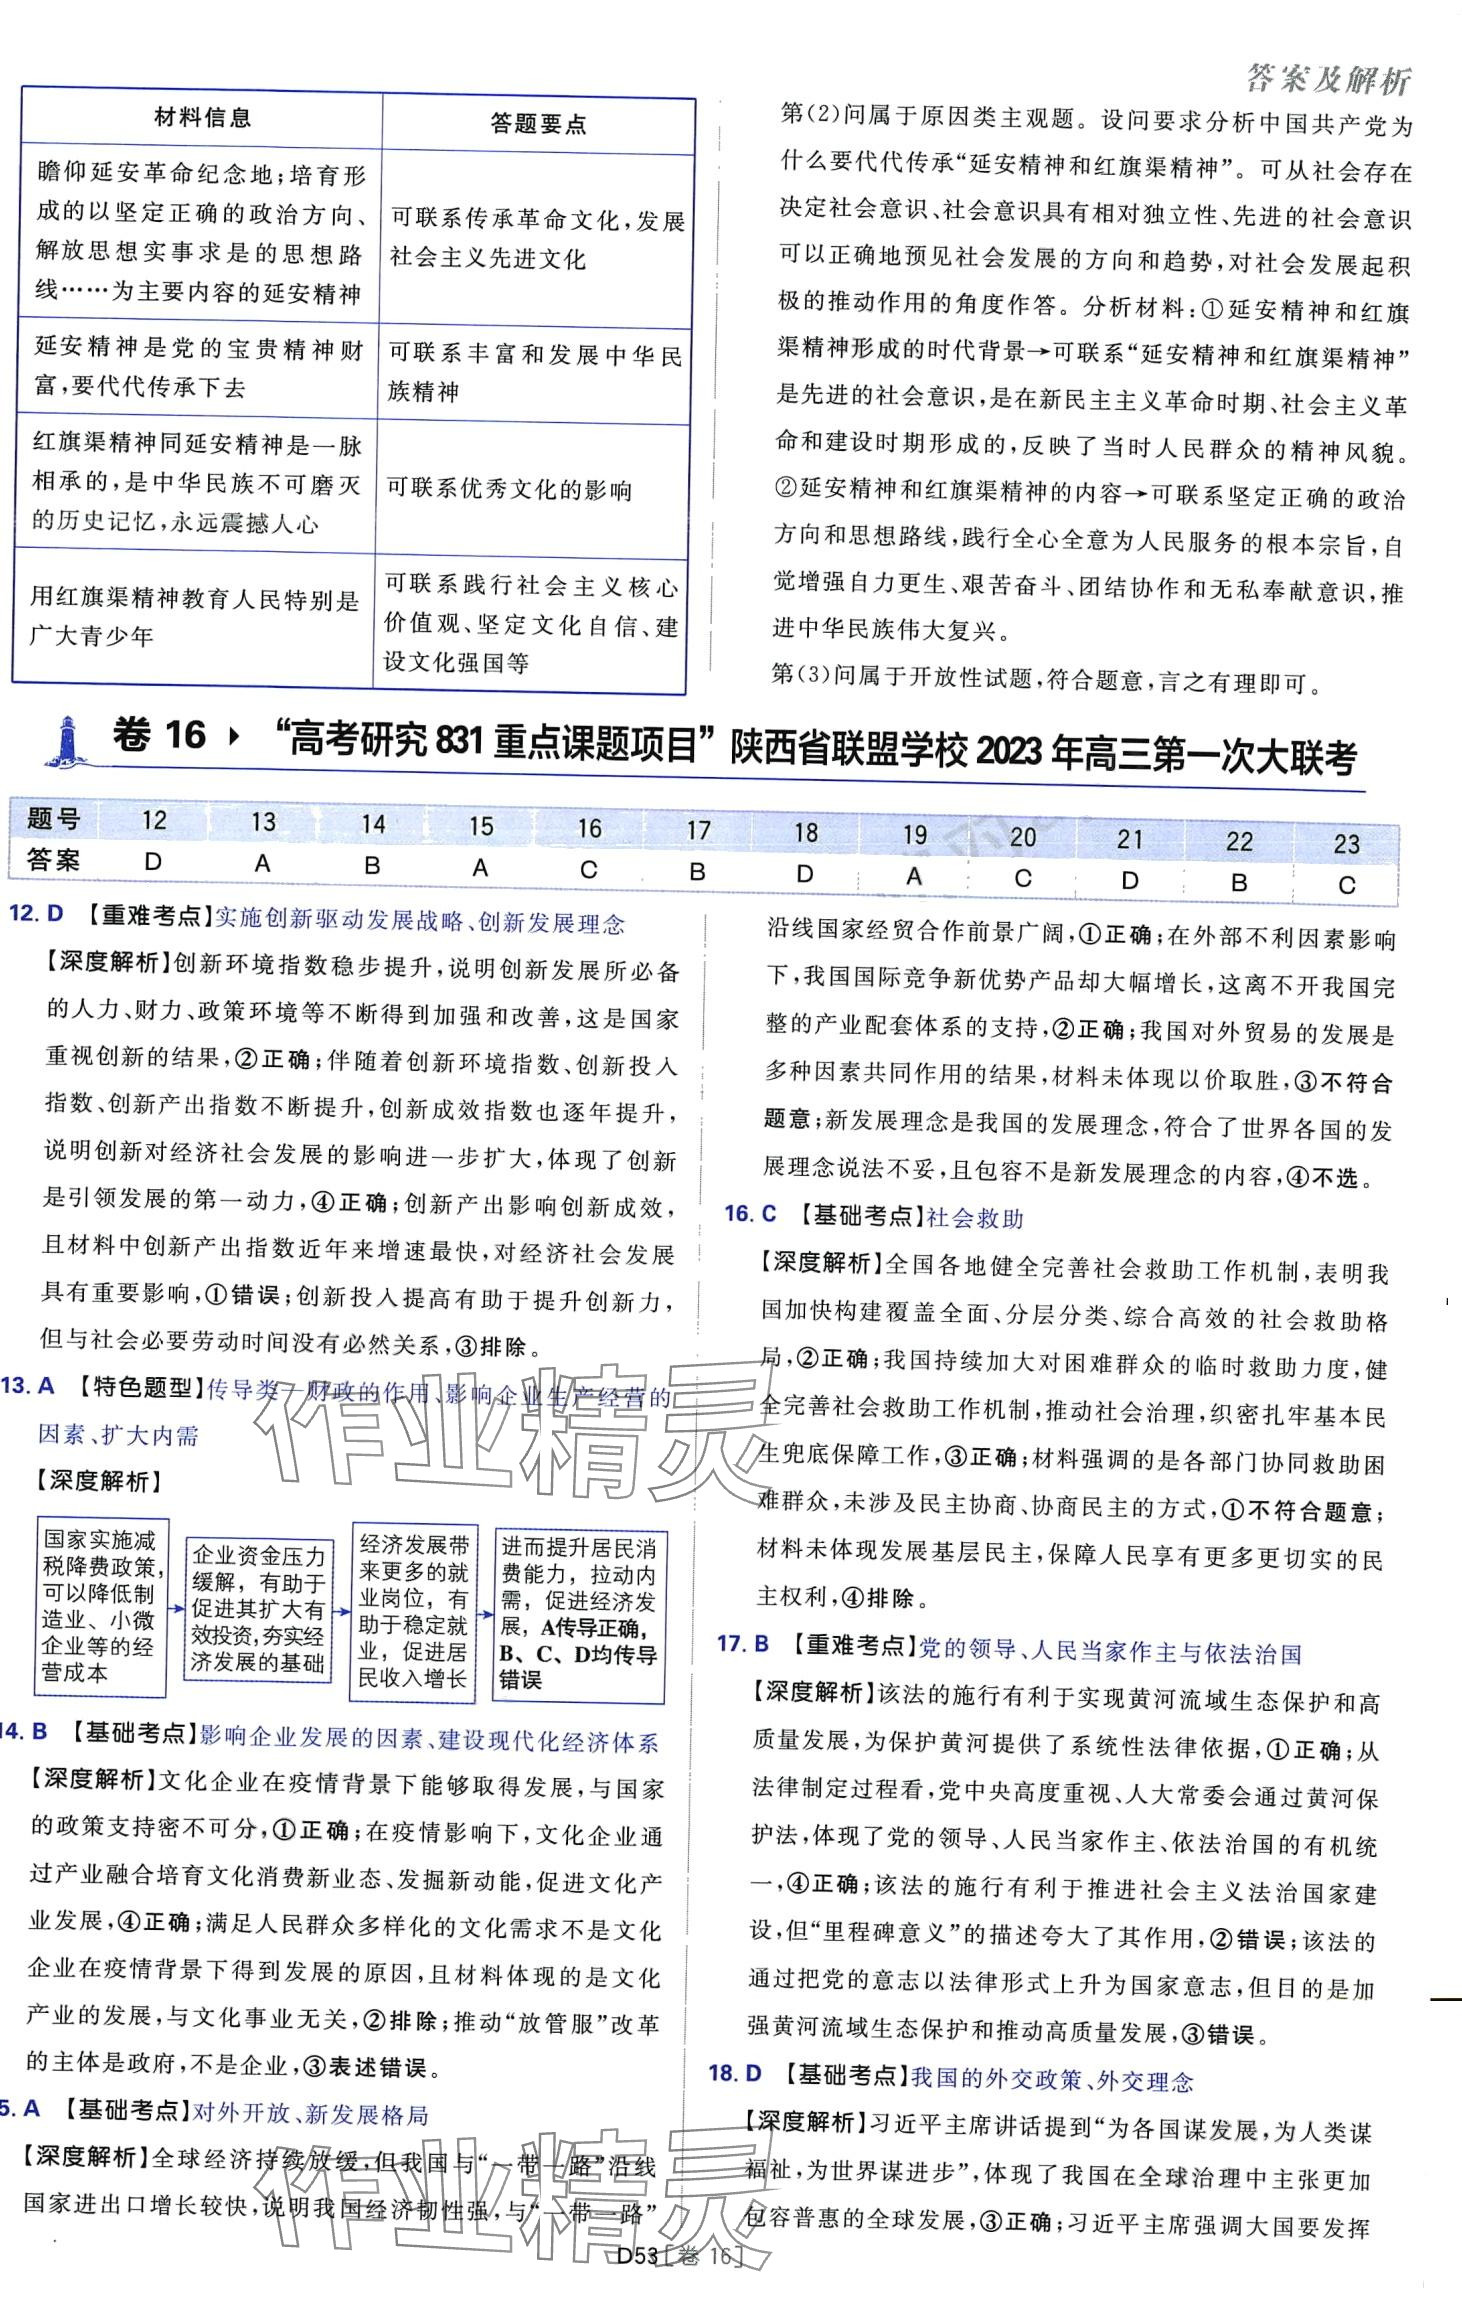 答案及解析
材料信息
答题要点
瞻仰延安革命纪念地;培育形
成的以坚定正确的政治方向、
解放思想实事求是的思想路
线……为主要内容的延安精神
可联系传承革命文化,发展
社会主义先进文化
延安精神是党的宝贵精神财
富,要代代传承下去
可联系丰富和发展中华民
族精神
红旗渠精神同延安精神是一脉
相承的,是中华民族不可磨灭
的历史记忆,永远震撼人心
可联系优秀文化的影响
用红旗渠精神教育人民特别是
广大青少年
可联系践行社会主义核心
价值观、坚定文化自信、建
设文化强国等
第(2)问属于原因类主观题。设问要求分析中国共产党为
什么要代代传承“延安精神和红旗渠精神”。可从社会存在
决定社会意识、社会意识具有相对独立性、先进的社会意识
可以正确地预见社会发展的方向和趋势,对社会发展起积
极的推动作用的角度作答。分析材料:①延安精神和红旗
渠精神形成的时代背景→可联系“延安精神和红旗渠精神”
是先进的社会意识,是在新民主主义革命时期、社会主义革
命和建设时期形成的,反映了当时人民群众的精神风貌。
②延安精神和红旗渠精神的内容→可联系坚定正确的政治
方向和思想路线,践行全心全意为人民服务的根本宗旨,自
觉增强自力更生、艰苦奋斗、团结协作和无私奉献意识,推
进中华民族伟大复兴。
第(3)问属于开放性试题,符合题意,言之有理即可。
卷 16 “高考研究 831 重点课题项目”陕西省联盟学校 2023 年高三第一次大联考
题号 12 13 14 15 16 17 18 19 20 21 22 23
答案 D A B A C B D A C D B C
12. D 【重难考点】实施创新驱动发展战略、创新发展理念
【深度解析】创新环境指数稳步提升,说明创新发展所必备
的人力、财力、政策环境等不断得到加强和改善,这是国家
重视创新的结果,②正确;伴随着创新环境指数、创新投入
指数、创新产出指数不断提升,创新成效指数也逐年提升,
说明创新对经济社会发展的影响进一步扩大,体现了创新
是引领发展的第一动力,④正确;创新产出影响创新成效,
且材料中创新产出指数近年来增速最快,对经济社会发展
具有重要影响,①错误;创新投入提高有助于提升创新力,
但与社会必要劳动时间没有必然关系,③排除。
13. A 【特色题型】传导类—财政的作用、影响企业生产经营的
因素、扩大内需
【深度解析】
国家实施减
税降费政策,
可以降低制
造业、小微
企业等的经
营成本
企业资金压力
缓解,有助于
促进其扩大有
效投资,夯实经
济发展的基础
经济发展带
来更多的就
业岗位,有
助于稳定就
业,促进居
民收入增长
进而提升居民消
费能力,拉动内
需,促进经济发
展,A传导正确,
B、C、D均传导
错误
14. B 【基础考点】影响企业发展的因素、建设现代化经济体系
【深度解析】文化企业在疫情背景下能够取得发展,与国家
的政策支持密不可分,①正确;在疫情影响下,文化企业通
过产业融合培育文化消费新业态、发掘新动能,促进文化产
业发展,④正确;满足人民群众多样化的文化需求不是文化
企业在疫情背景下得到发展的原因,且材料体现的是文化
产业的发展,与文化事业无关,②排除;推动“放管服”改革
的主体是政府,不是企业,③表述错误。
5. A 【基础考点】对外开放、新发展格局
【深度解析】全球经济持续放缓,但我国与“一带一路”沿线
国家进出口增长较快,说明我国经济韧性强,与“一带一路”
沿线国家经贸合作前景广阔,①正确;在外部不利因素影响
下,我国国际竞争新优势产品却大幅增长,这离不开我国完
整的产业配套体系的支持,②正确;我国对外贸易的发展是
多种因素共同作用的结果,材料未体现以价取胜,③不符合
题意;新发展理念是我国的发展理念,符合了世界各国的发
展理念说法不妥,且包容不是新发展理念的内容,④不选。
16. C 【基础考点】社会救助
【深度解析】全国各地健全完善社会救助工作机制,表明我
国加快构建覆盖全面、分层分类、综合高效的社会救助格
局,②正确;我国持续加大对困难群众的临时救助力度,健
全完善社会救助工作机制,推动社会治理,织密扎牢基本民
生兜底保障工作,③正确;材料强调的是各部门协同救助困
难群众,未涉及民主协商、协商民主的方式,①不符合题意;
材料未体现发展基层民主,保障人民享有更多更切实的民
主权利,④排除。
17. B 【重难考点】党的领导、人民当家作主与依法治国
【深度解析】该法的施行有利于实现黄河流域生态保护和高
质量发展,为保护黄河提供了系统性法律依据,①正确;从
法律制定过程看,党中央高度重视、人大常委会通过黄河保
护法,体现了党的领导、人民当家作主、依法治国的有机统
一,④正确;该法的施行有利于推进社会主义法治国家建
设,但“里程碑意义”的描述夸大了其作用,②错误;该法的
通过把党的意志以法律形式上升为国家意志,但目的是加
强黄河流域生态保护和推动高质量发展,③错误。
18. D 【基础考点】我国的外交政策、外交理念
【深度解析】习近平主席讲话提到“为各国谋发展,为人类谋
福祉,为世界谋进步”,体现了我国在全球治理中主张更加
包容普惠的全球发展,③正确;习近平主席强调大国要发挥
作业精灵
作业精灵
D53[卷 16]